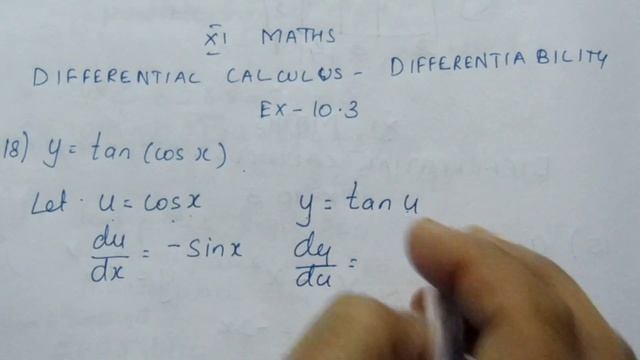 XI MATHS
DIFFERENTIAL CALCULUS - DIFFERENTIABILITY
EX - 10.3
18) y = tan (cos x)
Let u = cosx y = tan u
du/dx = - sinx dy/du =